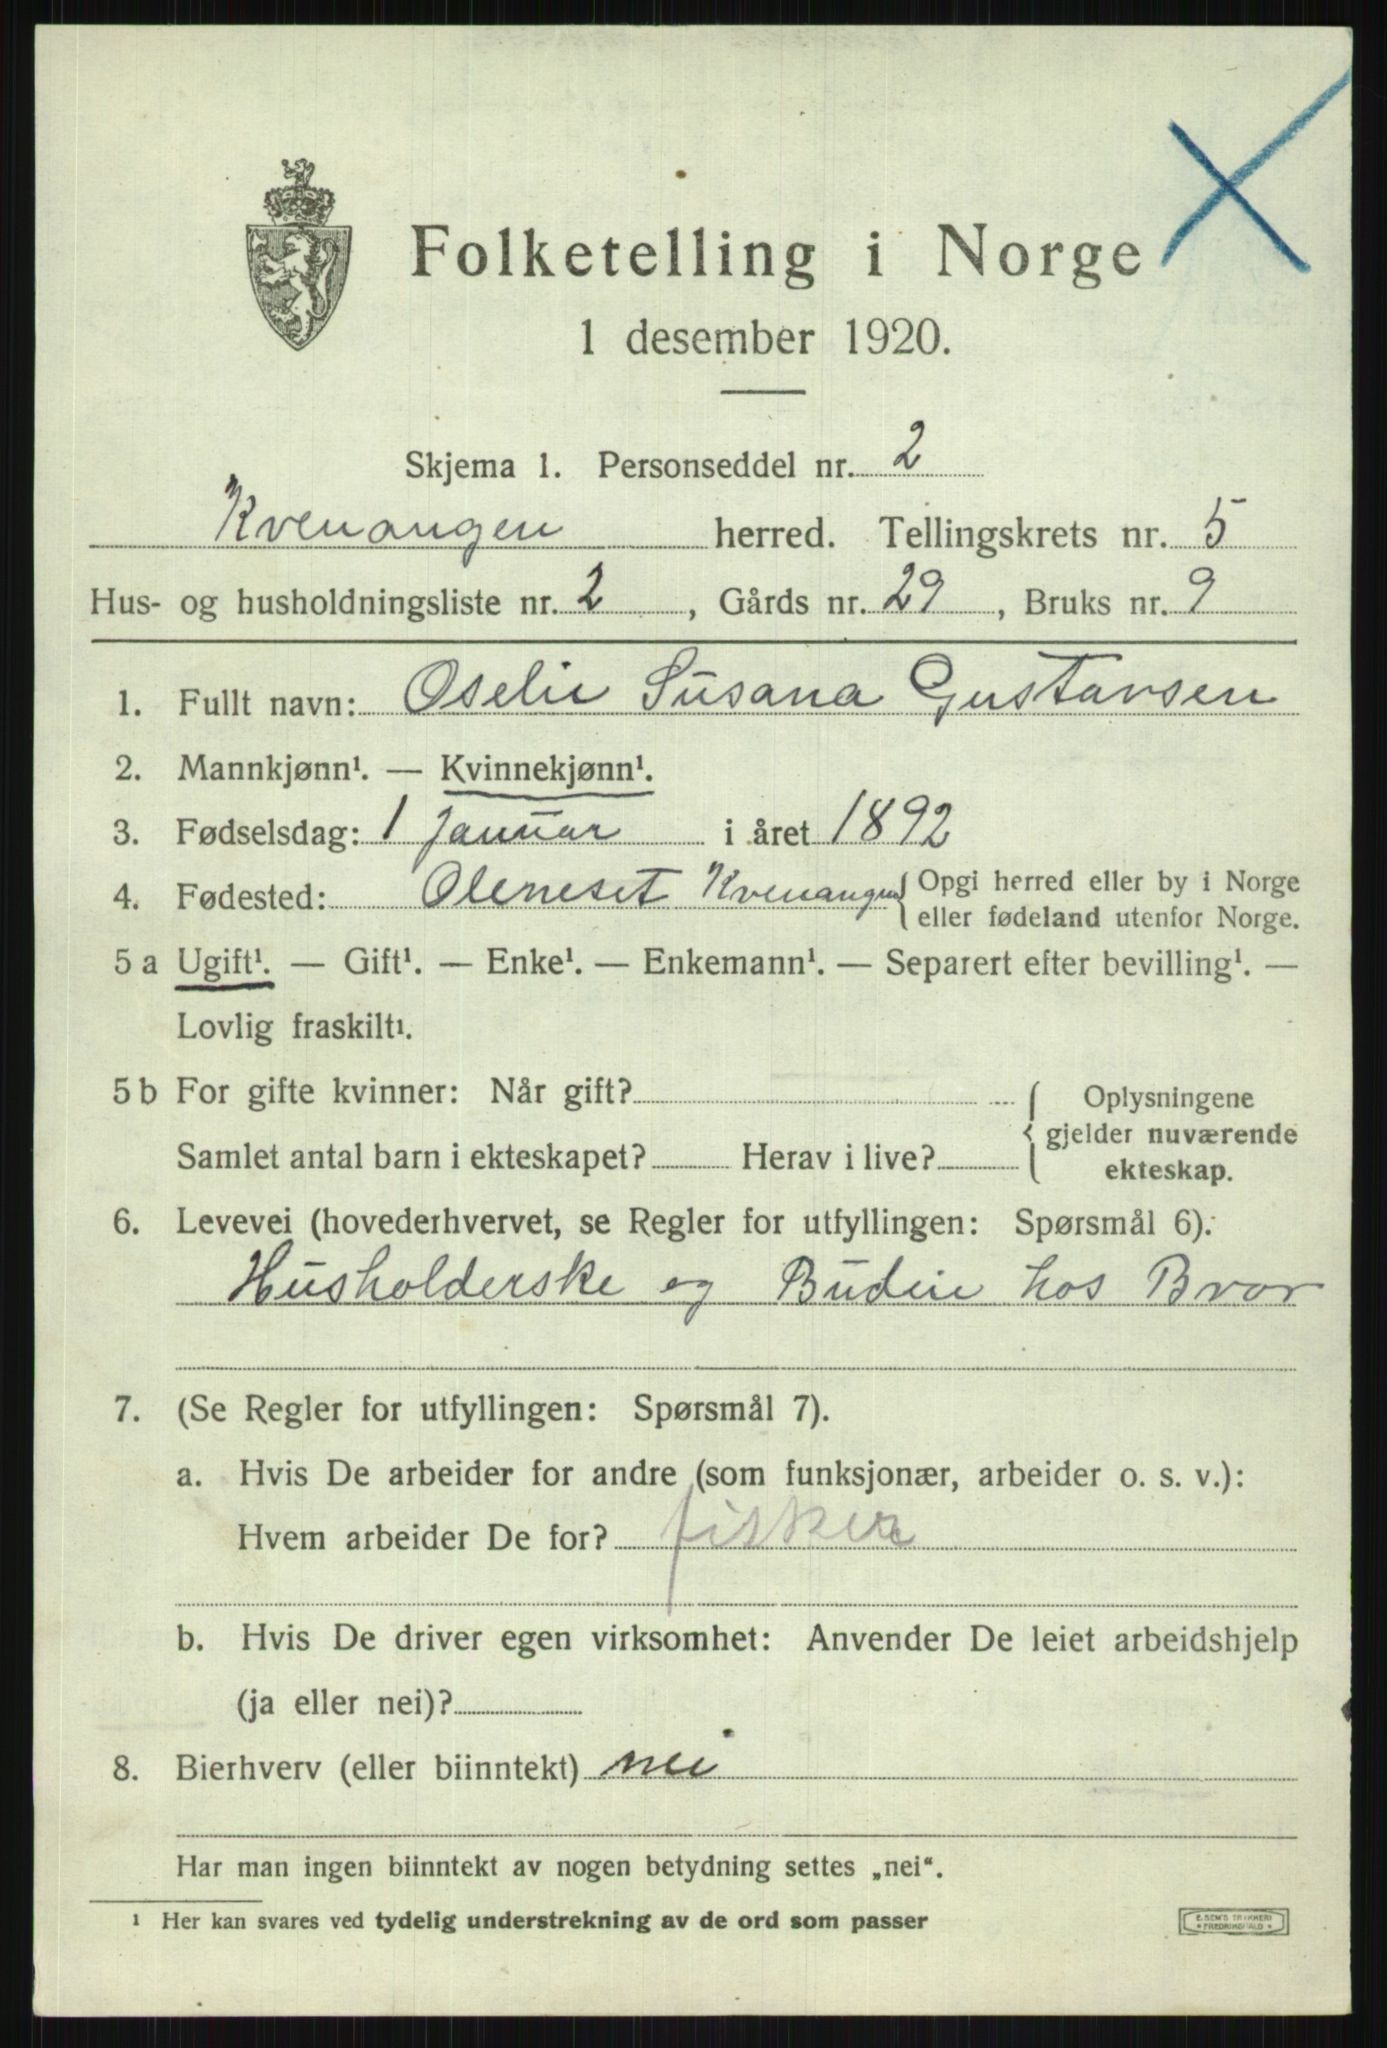 Folketelling i Norge
1 desember 1920.
Skjema 1. Personseddel nr. 2
Kvenangen herred. Tellingskrets nr. 5
Hus- og husholdningsliste nr. 2, Gårds nr. 29, Bruks nr. 9
1. Fullt navn: Oselie Susana Gustavsen
2. Mannkjønn¹. — Kvinnekjønn¹.
3. Fødselsdag: 1 januar i året 1892
4. Fødested: Oleneset Kvenangen { Opgi herred eller by i Norge
eller fødeland utenfor Norge.
5 a Ugift¹. — Gift¹. — Enke¹. — Enkemann¹. — Separert efter bevilling¹. —
Lovlig fraskilt¹.
5 b For gifte kvinner: Når gift? { Oplysningene
gjelder nuværende
Samlet antal barn i ekteskapet? Herav i live? ekteskap.
6. Levevei (hovederhvervet, se Regler for utfyllingen: Spørsmål 6).
Husholderske og Budeie hos Bror
7. (Se Regler for utfyllingen: Spørsmål 7).
a. Hvis De arbeider for andre (som funksjonær, arbeider o. s. v.):
Hvem arbeider De for? fisker
b. Hvis De driver egen virksomhet: Anvender De leiet arbeidshjelp
(ja eller nei)?
8. Bierhverv (eller biinntekt) nei
Har man ingen biinntekt av nogen betydning settes „nei“.
¹ Her kan svares ved tydelig understrekning av de ord som passer
E. SEM'S TRYKKERI
* FREDRIKSHALD *